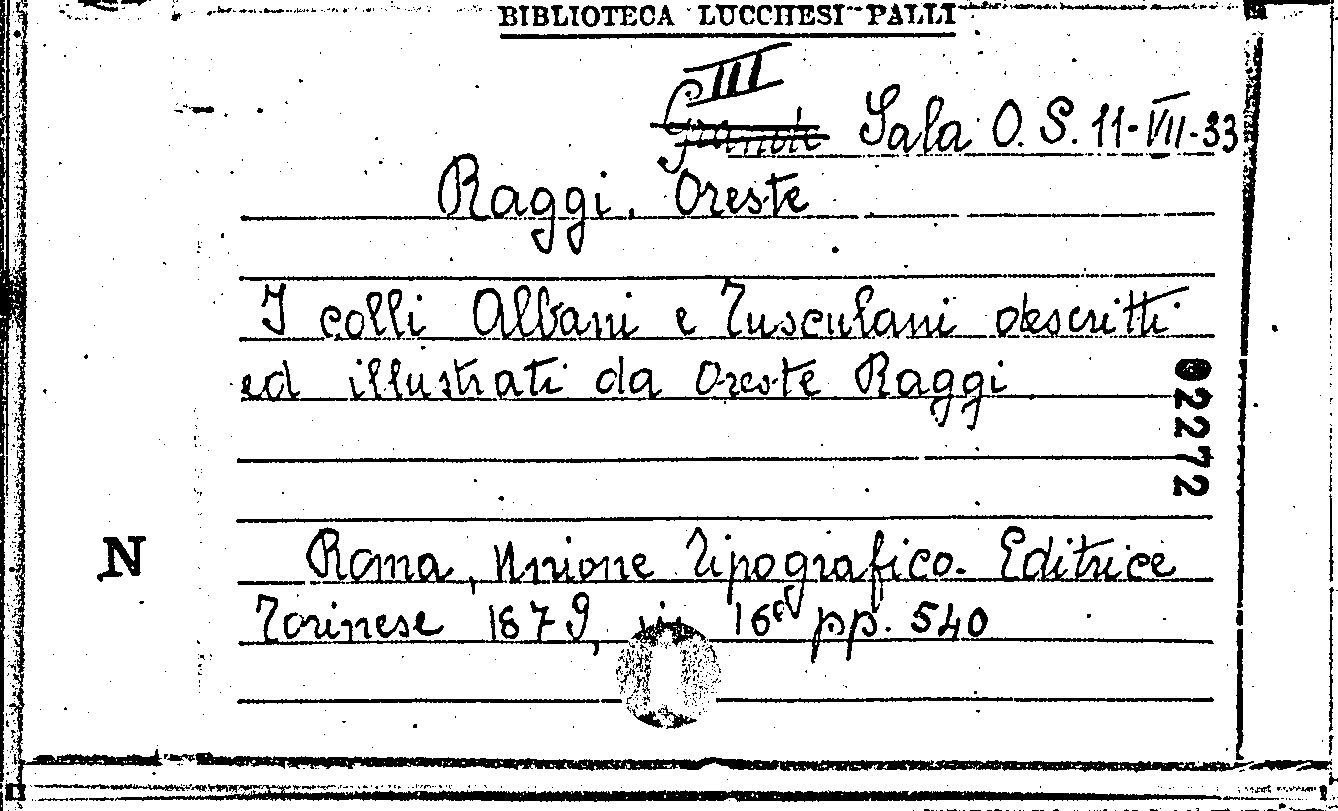 BIBLIOTECA LUCCHESI PALLI
III
Grande Sala O. S. 11-VII-33
Raggi, Oreste
I colli Albani e Tusculani descritti
ed illustrati da Oreste Raggi
02272
N
Roma, Unione Tipografico-Editrice
Torinese 1879, in 16° pp. 540